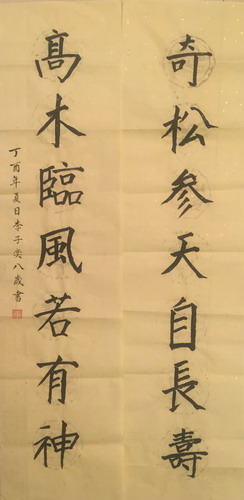 奇松参天自長壽
髙木臨風若有神
丁酉年夏日李子奕八歲書